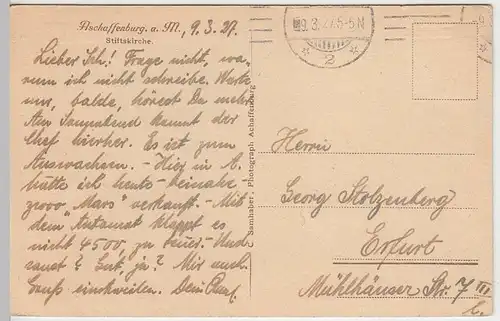 Aschaffenburg. a. M., 9. 3. 27.
Stiftskirche.
Lieber Sch! Frage nicht, wa-
rum ich nicht schreibe. Warte
nur, balde, hörest Du mehr.
Am Sonnabend kommt der
Chef hierher. Es ist zum
Auswachsen. - Hier in A.
hätte ich heute beinahe
2000 Mars verkauft. - Mit
dem Automat klappt es
nicht 4500 zu teuer. - Und
? Gut, ja? Mir auch.
Gruß einstweilen. Dein
Samhaber, Photograph Achaffenburg
9.3.27.5-6N
2
Herrn
Georg Stolzenberg
Erfurt
Mühlhäuser Str. 7 III